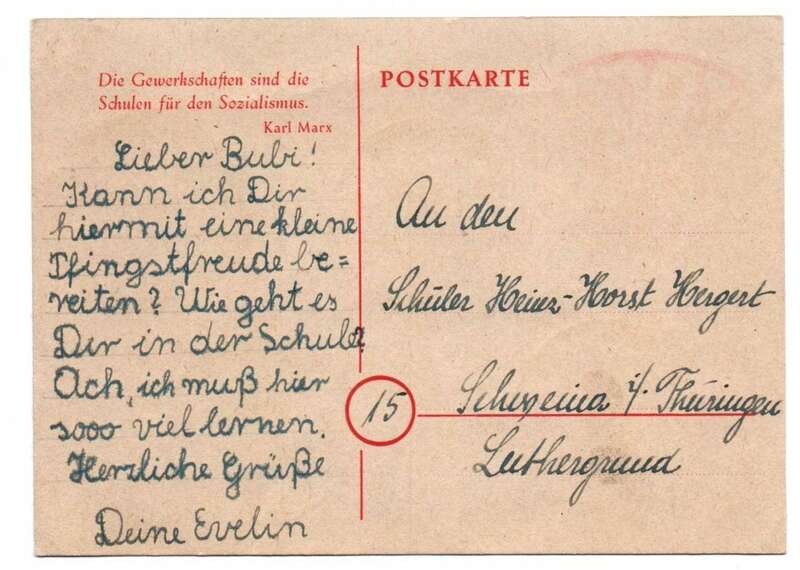 Die Gewerkschaften sind die
Schulen für den Sozialismus.
Karl Marx
Lieber Bubi!
Kann ich Dir
hiermit eine kleine
Pfingstfreude be=
reiten? Wie geht es
Dir in der Schule?
Ach, ich muß hier
sooo viel lernen.
Herzliche Grüße
Deine Evelin
POSTKARTE
An den
Schüler Heinz-Horst Hergert
15
Schweina i/ Thüringen
Luthergrund